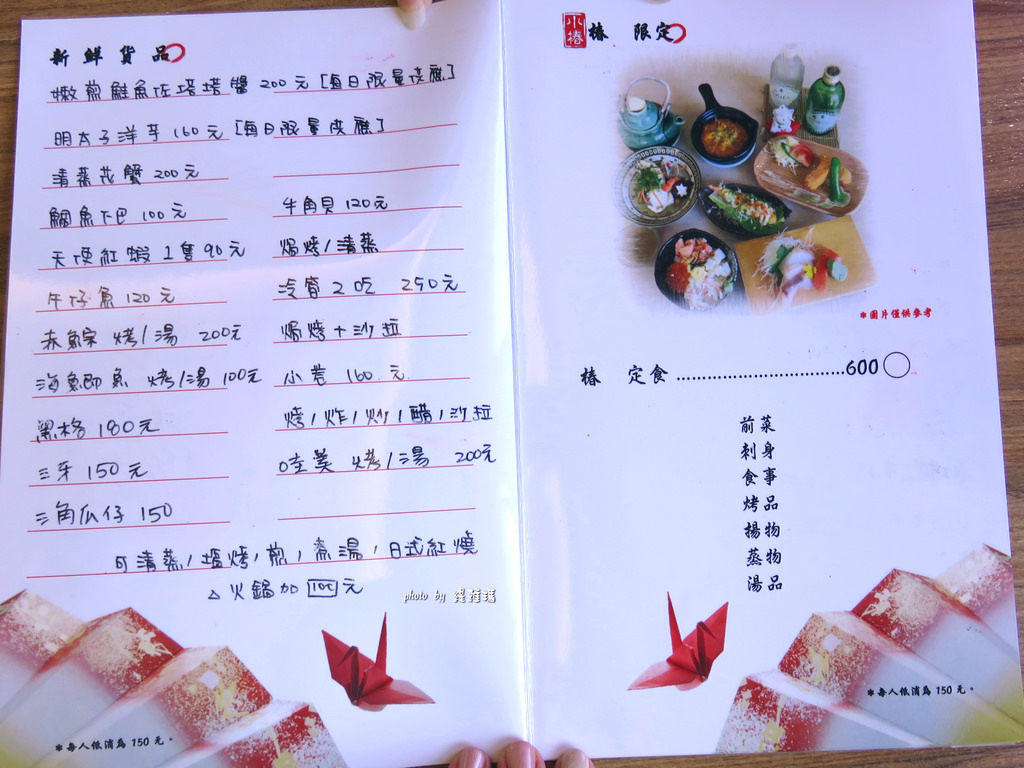 新鮮貨品
嫩煎鮭魚佐塔塔醬 200元 [每日限量供應]
明太子洋芋 160元 [每日限量供應]
清蒸花蟹 200元
鯛魚下巴 100元
天使紅蝦 1隻 90元
午仔魚 120元
赤鯮 烤/湯 200元
海鯽魚 烤/湯 100元
黑格 180元
三牙 150元
三角瓜仔 150
牛角貝 120元
焗烤/清蒸
冷管 2吃 250元
焗烤+沙拉
小卷 160元
烤/炸/炒/醋/沙拉
烤/湯 200元
可清蒸/塩烤/煎/煮湯/日式紅燒
△火鍋加 100元
photo by
*每人低消為 150 元。
小椿
椿 限定
*圖片僅供參考
椿 定食 ..............................600
前菜
刺身
食事
烤品
揚物
蒸物
湯品
*每人低消為 150 元。